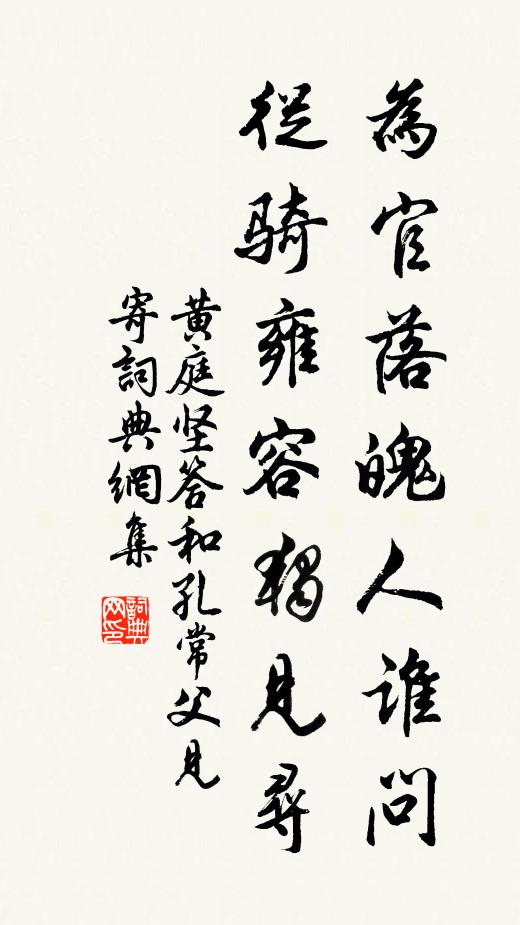 為官落魄人谁問
從騎雍容獨見尋
黄庭坚答和孔常父見
寄詞典網集
詞典
网印